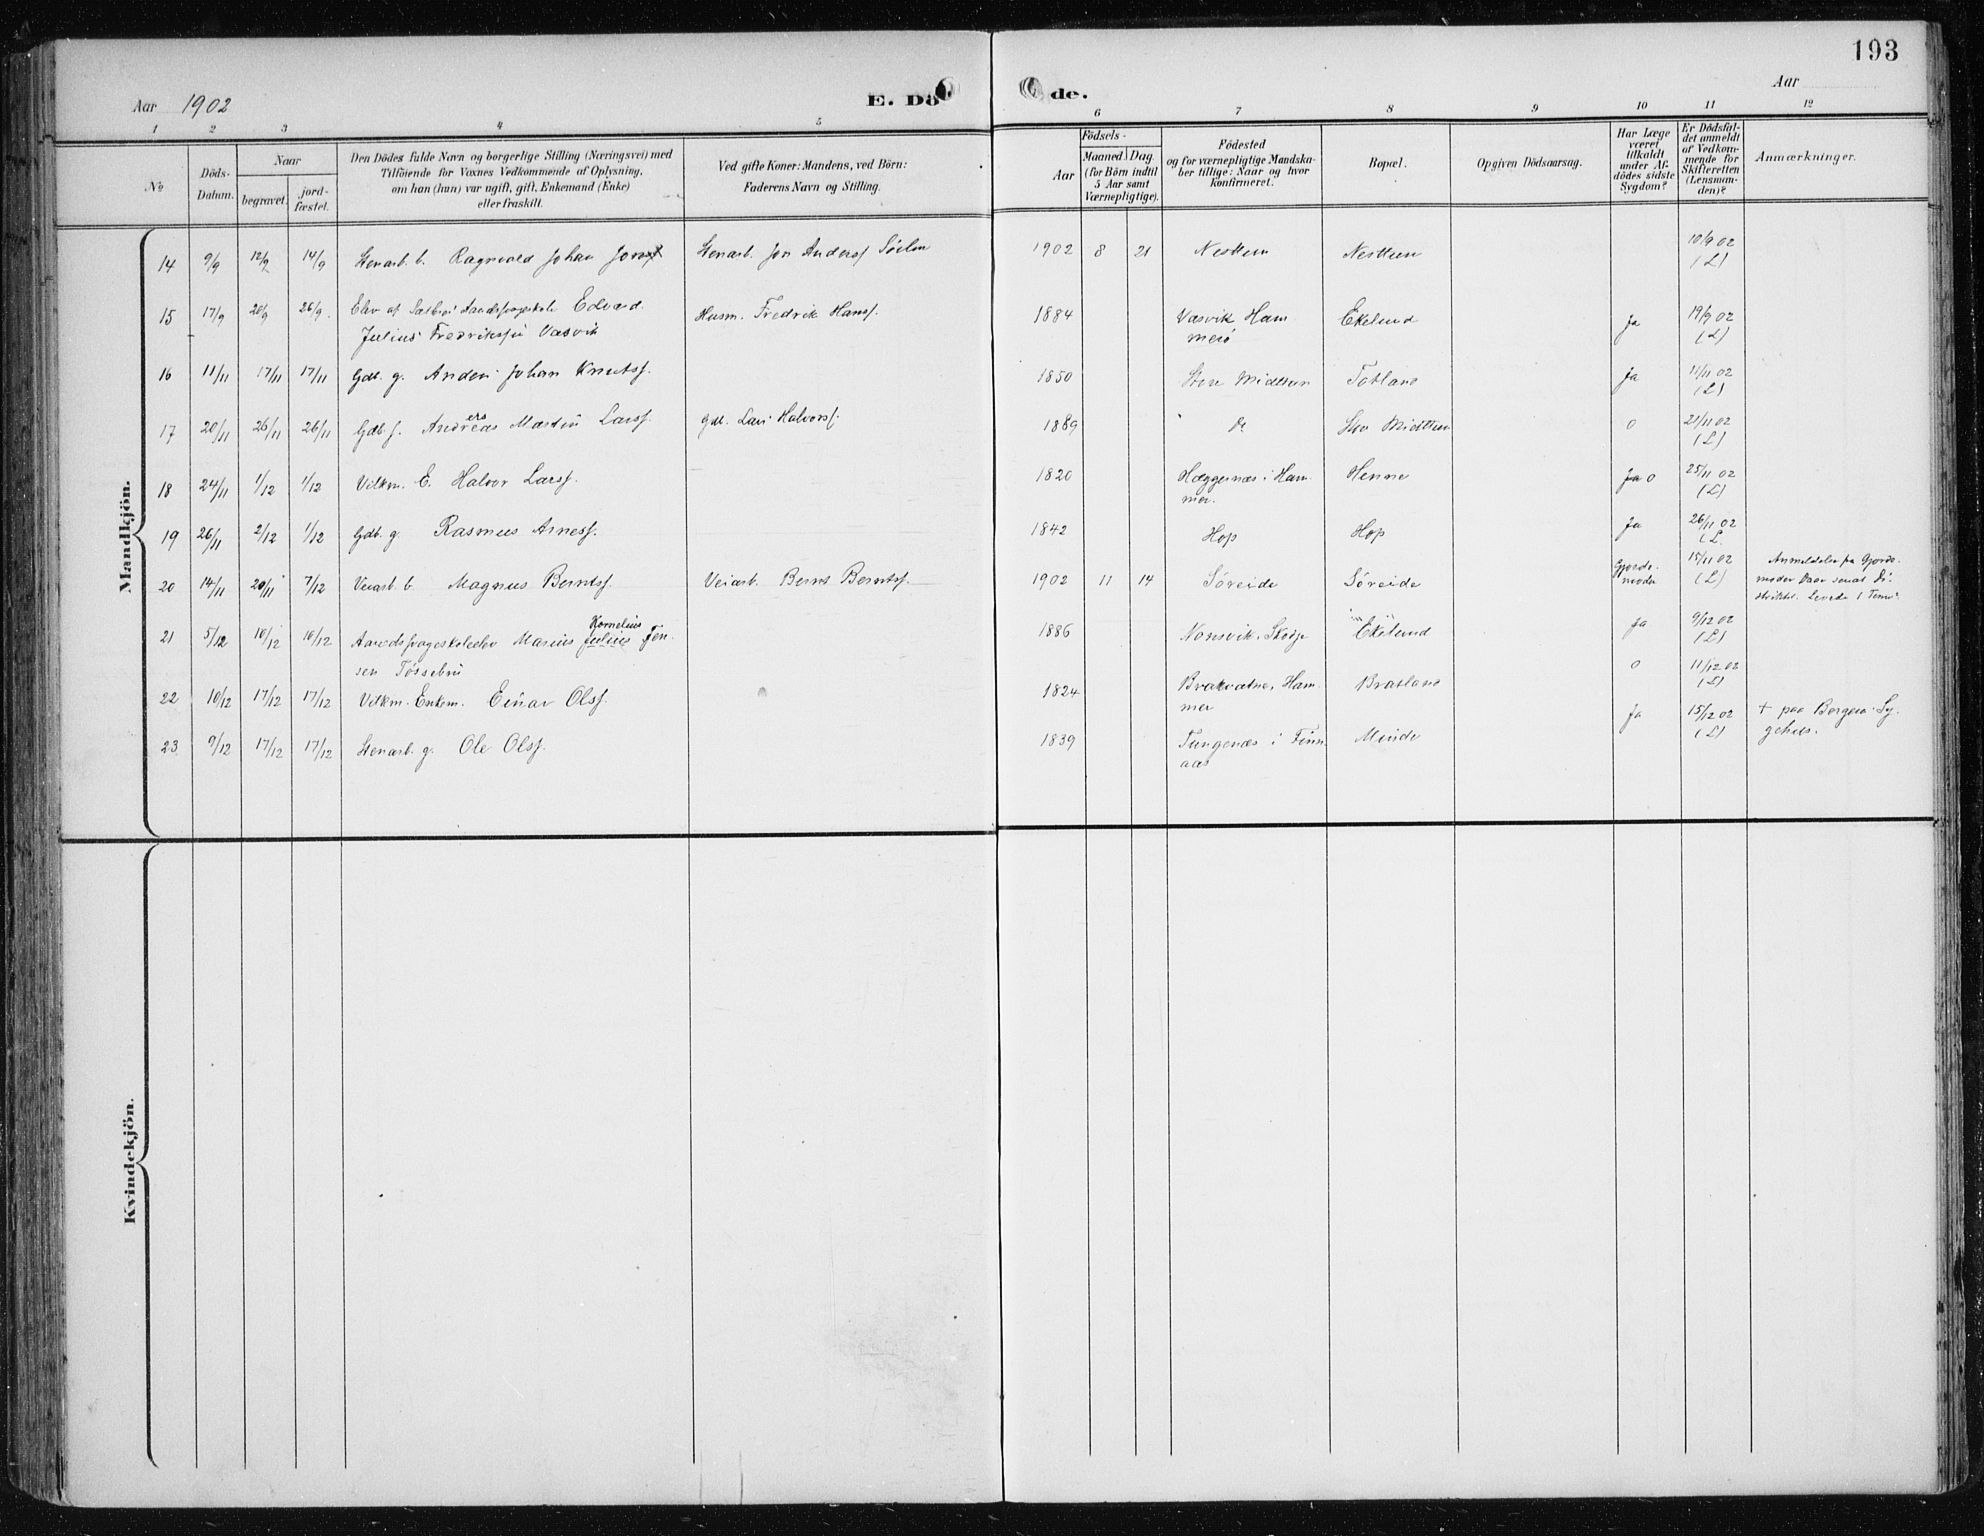 193
Aar 1902
E. Dö
de.
Aar
1 2 3 4 5 6 7 8 9 10 11 12
No
Döds-
Datum.
Naar
begravet.
jord-
fæstet.
Den Dödes fulde Navn og borgerlige Stilling (Næringsvei) med
Tilföiende for Voxnes Vedkommende af Oplysning,
om han (hun) var ugift, gift, Enkemand (Enke)
eller fraskilt.
Ved gifte Koner: Mandens, ved Börn:
Faderens Navn og Stilling.
Födsels-
Aar
Maaned Dag
(for Börn indtil
5 Aar samt
Værnepligtige).
Födested
og for værnepligtige Mandska-
ber tillige: Naar og hvor
konfirmeret.
Bopæl.
Opgiven Dödsaarsag.
Har Læge
været
tilkaldt
under Af-
dödes sidste
Sygdom?
Er Dödsfal-
det anmeldt
af Vedkom-
mende for
Skifteretten
(Lensman-
den)?
Anmærkninger.
Mandkjön.
14 9/9 12/9 14/9 Stenarb. b. Ragnvald Johan Stenarb. Jon Anderss 1902 8 21 Nesttun Nesttun 10/9 02
(L)
15 17/9 20/9 26/9 Elev af Aandsvageskole Edvard Husm. Fredrik Hanss. 1884 Vasvik Ham Ekelund ja 19/9 02
Julius Fredrikssøn Vasvik merø (L)
16 11/11 17/11 17/11 Gdb. g. Anders Johan Knutss. 1850 Store Midttun Totland ja 11/11 02
(L)
ers
17 20/11 26/11 26/11 Gdb. s. Andreas Martin Larss. Gdb. Lars Halvorss. 1889 do Midttun 0 21/11 02
(L)
18 24/11 1/12 1/12 Vilkm. E. Halvor Larss. 1820 Hæggernæs i Ham- Henne ja 0 25/11 02
mer. (L)
19 26/11 2/12 1/12 Gdb. g. Rasmus Arness. 1842 Hop Hop ja 26/11 02
(L.
20 14/11 20/11 7/12 Veiarb. b. Magnus Berntss. Veiarb. Bernt Berntss. 1902 11 14 Søreide Søreide Gjorde- 15/11 02 Anmeldelse fra Gjorde-
moder (L) moder
Levede 1 Time.
Kornelius
21 5/12 10/12 10/12 Aandsvageskoleelev Marius Julius Jen- 1886 Nonsvik, Ekelund ja 9/12 02
sen Tøssebru (L)
22 10/12 17/12 17/12 Vilkm. Enkem. Einar Olss. 1824 Brakvatne, Ham- Bratland 0 11/12 02
mer (L)
23 9/12 17/12 17/12 Stenarb. g. Ole Olss. 1839 Tungenæs i Finn- Minde ja 15/12 02 + paa Bergens Sy-
aas (L) gehus.
Kvindekjön.